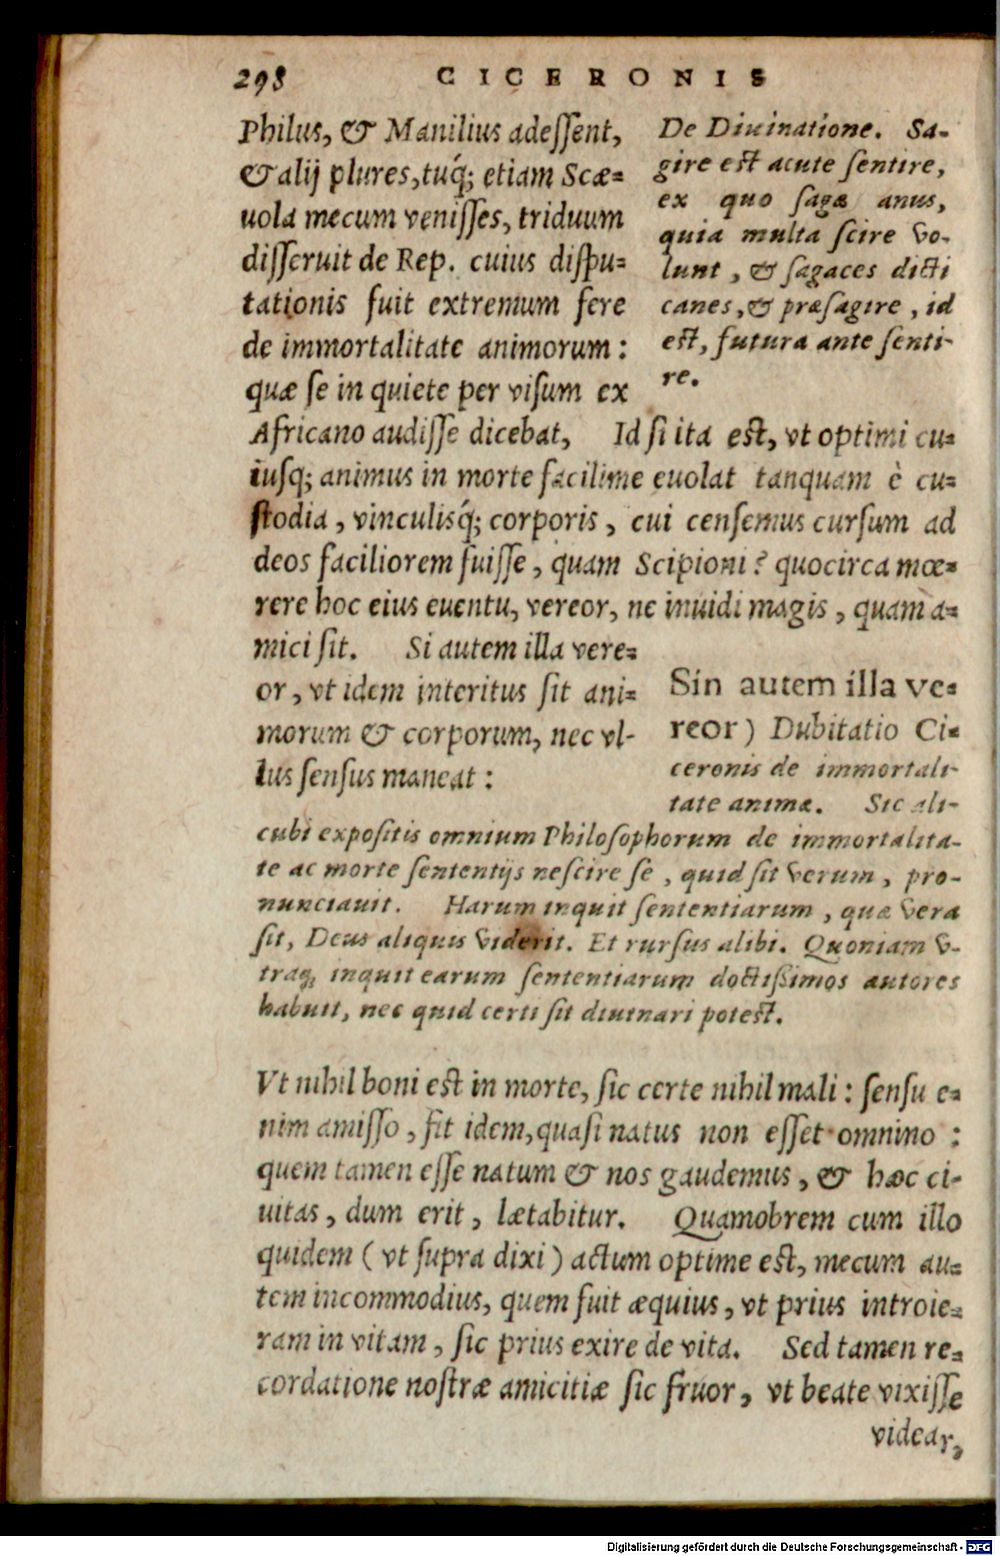 298 CICERONIS
Philus, & Manilius adessent,
& alij plures, tuq́; etiam Scæ=
uola mecum venisses, triduum
disseruit de Rep. cuius dispu=
tationis fuit extremum fere
de immortalitate animorum:
quæ se in quiete per visum ex
De Diuinatione. Sa-
gire est acute sentire,
ex quo sagæ anus,
quia multa scire vo-
lunt, & sagaces dicti
canes, & præsagire, id
est, futura ante senti-
re.
Africano audisse dicebat, Id si ita est, vt optimi cu=
iusq; animus in morte facilime euolat tanquam è cu=
stodia, vinculisq́; corporis, cui censemus cursum ad
deos faciliorem fuisse, quam Scipioni? quocirca mœ=
rere hoc eius euentu, vereor, ne inuidi magis, quam a=
mici sit. Si autem illa vere=
or, vt idem interitus sit ani=
morum & corporum, nec vl-
lus sensus maneat:
Sin autem illa ve=
reor) Dubitatio Ci=
ceronis de immortali-
tate animæ. Sic ali-
cubi expositis omnium Philosophorum de immortalita-
te ac morte sententijs nescire se, quid sit verum, pro-
nunciauit. Harum inquit sententiarum, quæ vera
sit, Deus aliquis viderit. Et rursus alibi. Quoniam v-
traq; inquit earum sententiarum doctißimos autores
habuit, nec quid certi sit diuinari potest.
Vt nihil boni est in morte, sic certe nihil mali: sensu e=
nim amisso, fit idem, quasi natus non esset omnino:
quem tamen esse natum & nos gaudemus, & hæc ci-
uitas, dum erit, lætabitur. Quamobrem cum illo
quidem (vt supra dixi) actum optime est, mecum au=
tem incommodius, quem fuit æquius, vt prius introie=
ram in vitam, sic prius exire de vita. Sed tamen re=
cordatione nostræ amicitiæ sic fruor, vt beate vixisse
videar,
Digitalisierung gefördert durch die Deutsche Forschungsgemeinschaft - DFG